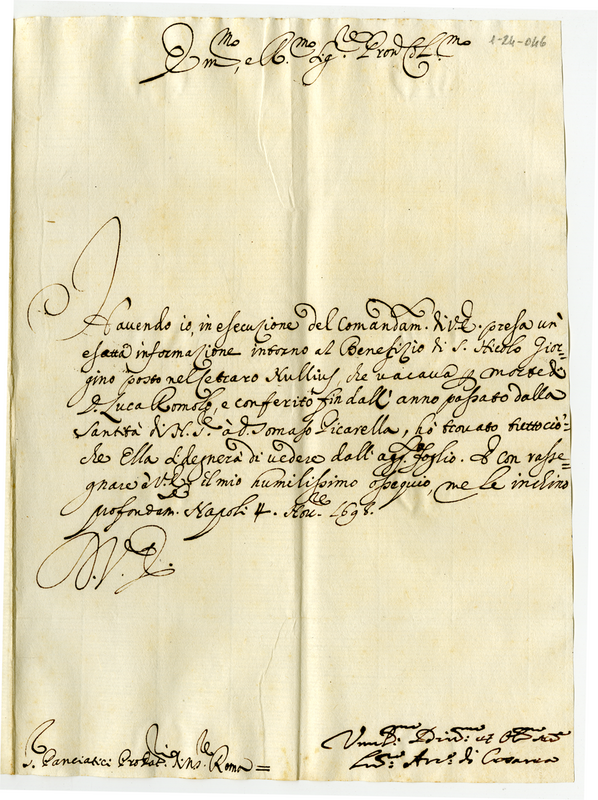 Em.mo, e R.mo Sig.re Pron Col.mo
1-24-046
Havendo io, in esecuzione del Comandam. di V.E. presa un'
esatta informazione intorno al Benefizio di S. Nicolo Gior-
gino posto nel Cetraro Nullius, che vacava p morte di
D. Luca Romolo, e conferito fin dall' anno passato dalla
Santità di N. S. à D. Tomaso Picarella, hò trovato tutto ciò,
che Ella si degnerà di vedere dall' agg.to foglio. E con rasse-
gnare à V.E. il mio humilissimo ossequio, me le inchino
profondam. Napoli 4. Nov.re 1698.
D. V. E.
S. Panciatici Prodat. di N.S. Roma =
Um.o Div.mo et Obb.mo
Arc.o di Cosenza